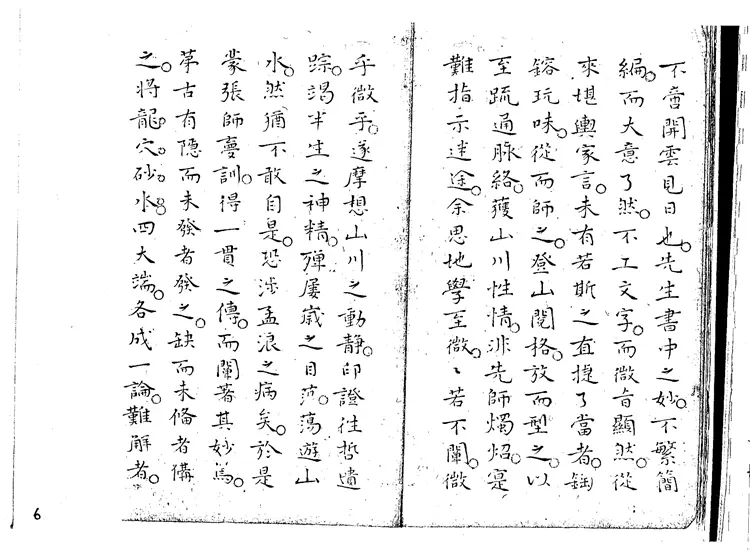 不啻開雲見日也。先生書中之妙。不繁簡
編。而大意了然。不工文字。而微旨顯然。從
來堪輿家言。未有若斯之直捷了當者。
鎔玩味。從而師之。登山閱格。放而型之。以
至疏通脉絡。獲山川性情。非先師燭炤。寔
難指示迷途。余思地學至微。〻若不闡微
乎微乎。遂摩想山川之動靜。印證往哲遺
踪。竭半生之神精。殫屢歲之目。蕩遊山
水。然猶不敢自是。恐涉孟浪之病矣。於是
蒙張師夢訓。得一貫之傳。而闡著其妙焉。
苐古有隱而未發者發之。缺而未備者搆
之。將龍。穴。砂。水。四大端。各成一論。難解者。
6